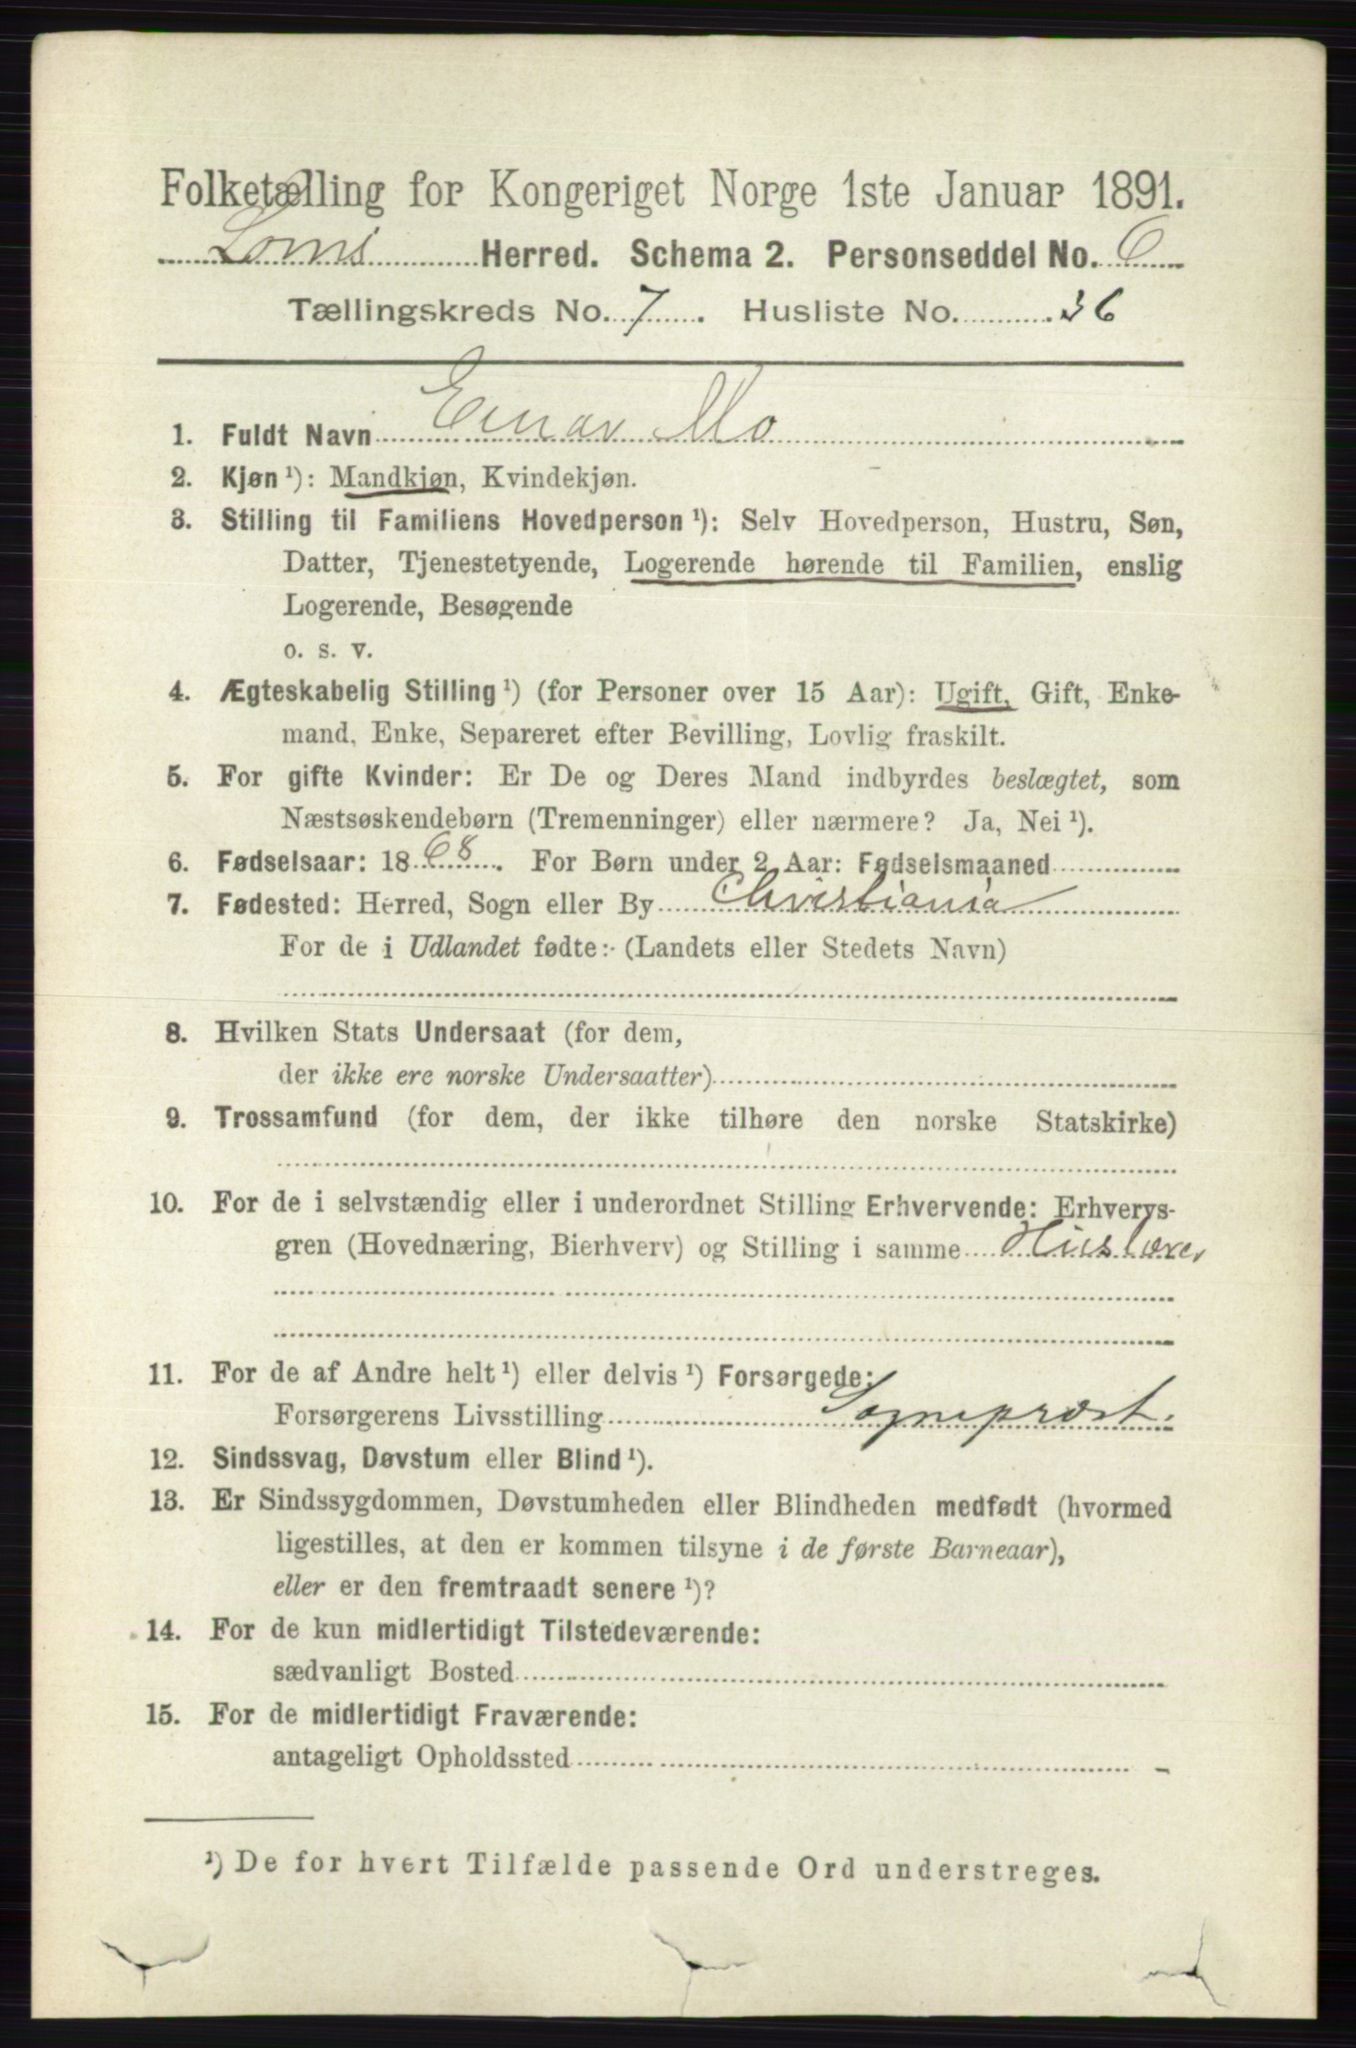 Folketælling for Kongeriget Norge 1ste Januar 1891.
Loms Herred. Schema 2. Personseddel No. 6
Tællingskreds No. 7. Husliste No. 36
1. Fuldt Navn Einar Mo
2. Kjøn ¹): Mandkjøn, Kvindekjøn.
3. Stilling til Familiens Hovedperson ¹): Selv Hovedperson, Hustru, Søn,
Datter, Tjenestetyende, Logerende hørende til Familien, enslig
Logerende, Besøgende
o. s. v.
4. Ægteskabelig Stilling ¹) (for Personer over 15 Aar): Ugift, Gift, Enke-
mand, Enke, Separeret efter Bevilling, Lovlig fraskilt.
5. For gifte Kvinder: Er De og Deres Mand indbyrdes beslægtet, som
Næstsøskendebørn (Tremenninger) eller nærmere? Ja, Nei ¹).
6. Fødselsaar: 1868. For Børn under 2 Aar: Fødselsmaaned
7. Fødested: Herred, Sogn eller By Christiania
For de i Udlandet fødte: (Landets eller Stedets Navn)
8. Hvilken Stats Undersaat (for dem,
der ikke ere norske Undersaatter)
9. Trossamfund (for dem, der ikke tilhøre den norske Statskirke)
10. For de i selvstændig eller i underordnet Stilling Erhvervende: Erhvervs-
gren (Hovednæring, Bierhverv) og Stilling i samme Huslærer
11. For de af Andre helt ¹) eller delvis ¹) Forsørgede:
Forsørgerens Livsstilling Sogneprest.
12. Sindssvag, Døvstum eller Blind ¹).
13. Er Sindssygdommen, Døvstumheden eller Blindheden medfødt (hvormed
ligestilles, at den er kommen tilsyne i de første Barneaar),
eller er den fremtraadt senere ¹)?
14. For de kun midlertidigt Tilstedeværende:
sædvanligt Bosted
15. For de midlertidigt Fraværende:
antageligt Opholdssted
¹) De for hvert Tilfælde passende Ord understreges.